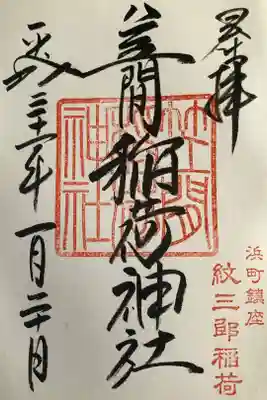 奉拝
浜町鎮座
紋三郎稲荷
笠間稲荷神社
平成三十一年一月二十日